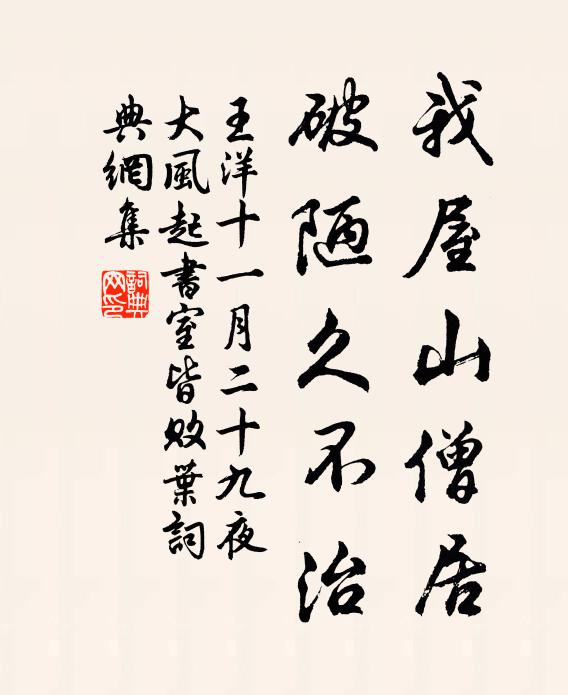 我屋山僧居
破陋久不治
王洋十一月二十九夜
大風起書室皆敗葉詞
典網集
詞典
网印